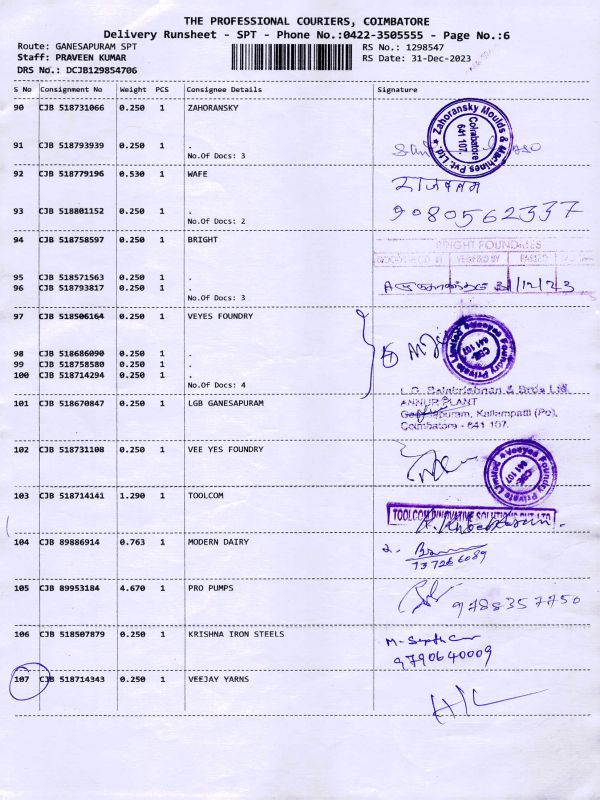 THE PROFESSIONAL COURIERS, COIMBATORE
Delivery Runsheet - SPT - Phone No.:0422-3505555 - Page No.:6
Route: GANESAPURAM SPT RS No.: 1298547
Staff: PRAVEEN KUMAR RS Date: 31-Dec-2023
DRS No.: DCJB129854706
S No Consignment No Weight PCS Consignee Details Signature
90 CJB 518731066 0.250 1 ZAHORANSKY
Zahoransky Moulds & Machines Pvt. Ltd.
Coimbatore
641 107.
91 CJB 518793939 0.250 1 .
No.Of Docs: 3
92 CJB 518779196 0.530 1 WAFE
93 CJB 518801152 0.250 1 . 9080562337
No.Of Docs: 2
94 CJB 518758597 0.250 1 BRIGHT
BRIGHT FOUNDRIES
VERIFIED BY PASSED
95 CJB 518571563 0.250 1 .
96 CJB 518793817 0.250 1 . 31/12/23
No.Of Docs: 3
97 CJB 518506164 0.250 1 VEYES FOUNDRY
Veeyes Foundry Private Limited
CBE-
641 107
98 CJB 518686090 0.250 1 .
99 CJB 518758580 0.250 1 .
100 CJB 518714294 0.250 1 .
No.Of Docs: 4
L.G. Balakrishnan & Bros Ltd
101 CJB 518670847 0.250 1 LGB GANESAPURAM ANNUR PLANT
Ganesapuram, Kallampatti (Po),
Coimbatore - 641 107.
102 CJB 518731108 0.250 1 VEE YES FOUNDRY
Veeyes Foundry Private Limited
CBE-
641 107
103 CJB 518714141 1.290 1 TOOLCOM
TOOLCOM INNOVATIVE SOLUTIONS PVT LTD
104 CJB 89886914 0.763 1 MODERN DAIRY
105 CJB 89953184 4.670 1 PRO PUMPS 9788357750
106 CJB 518507879 0.250 1 KRISHNA IRON STEELS
9790640009
107 CJB 518714343 0.250 1 VEEJAY YARNS